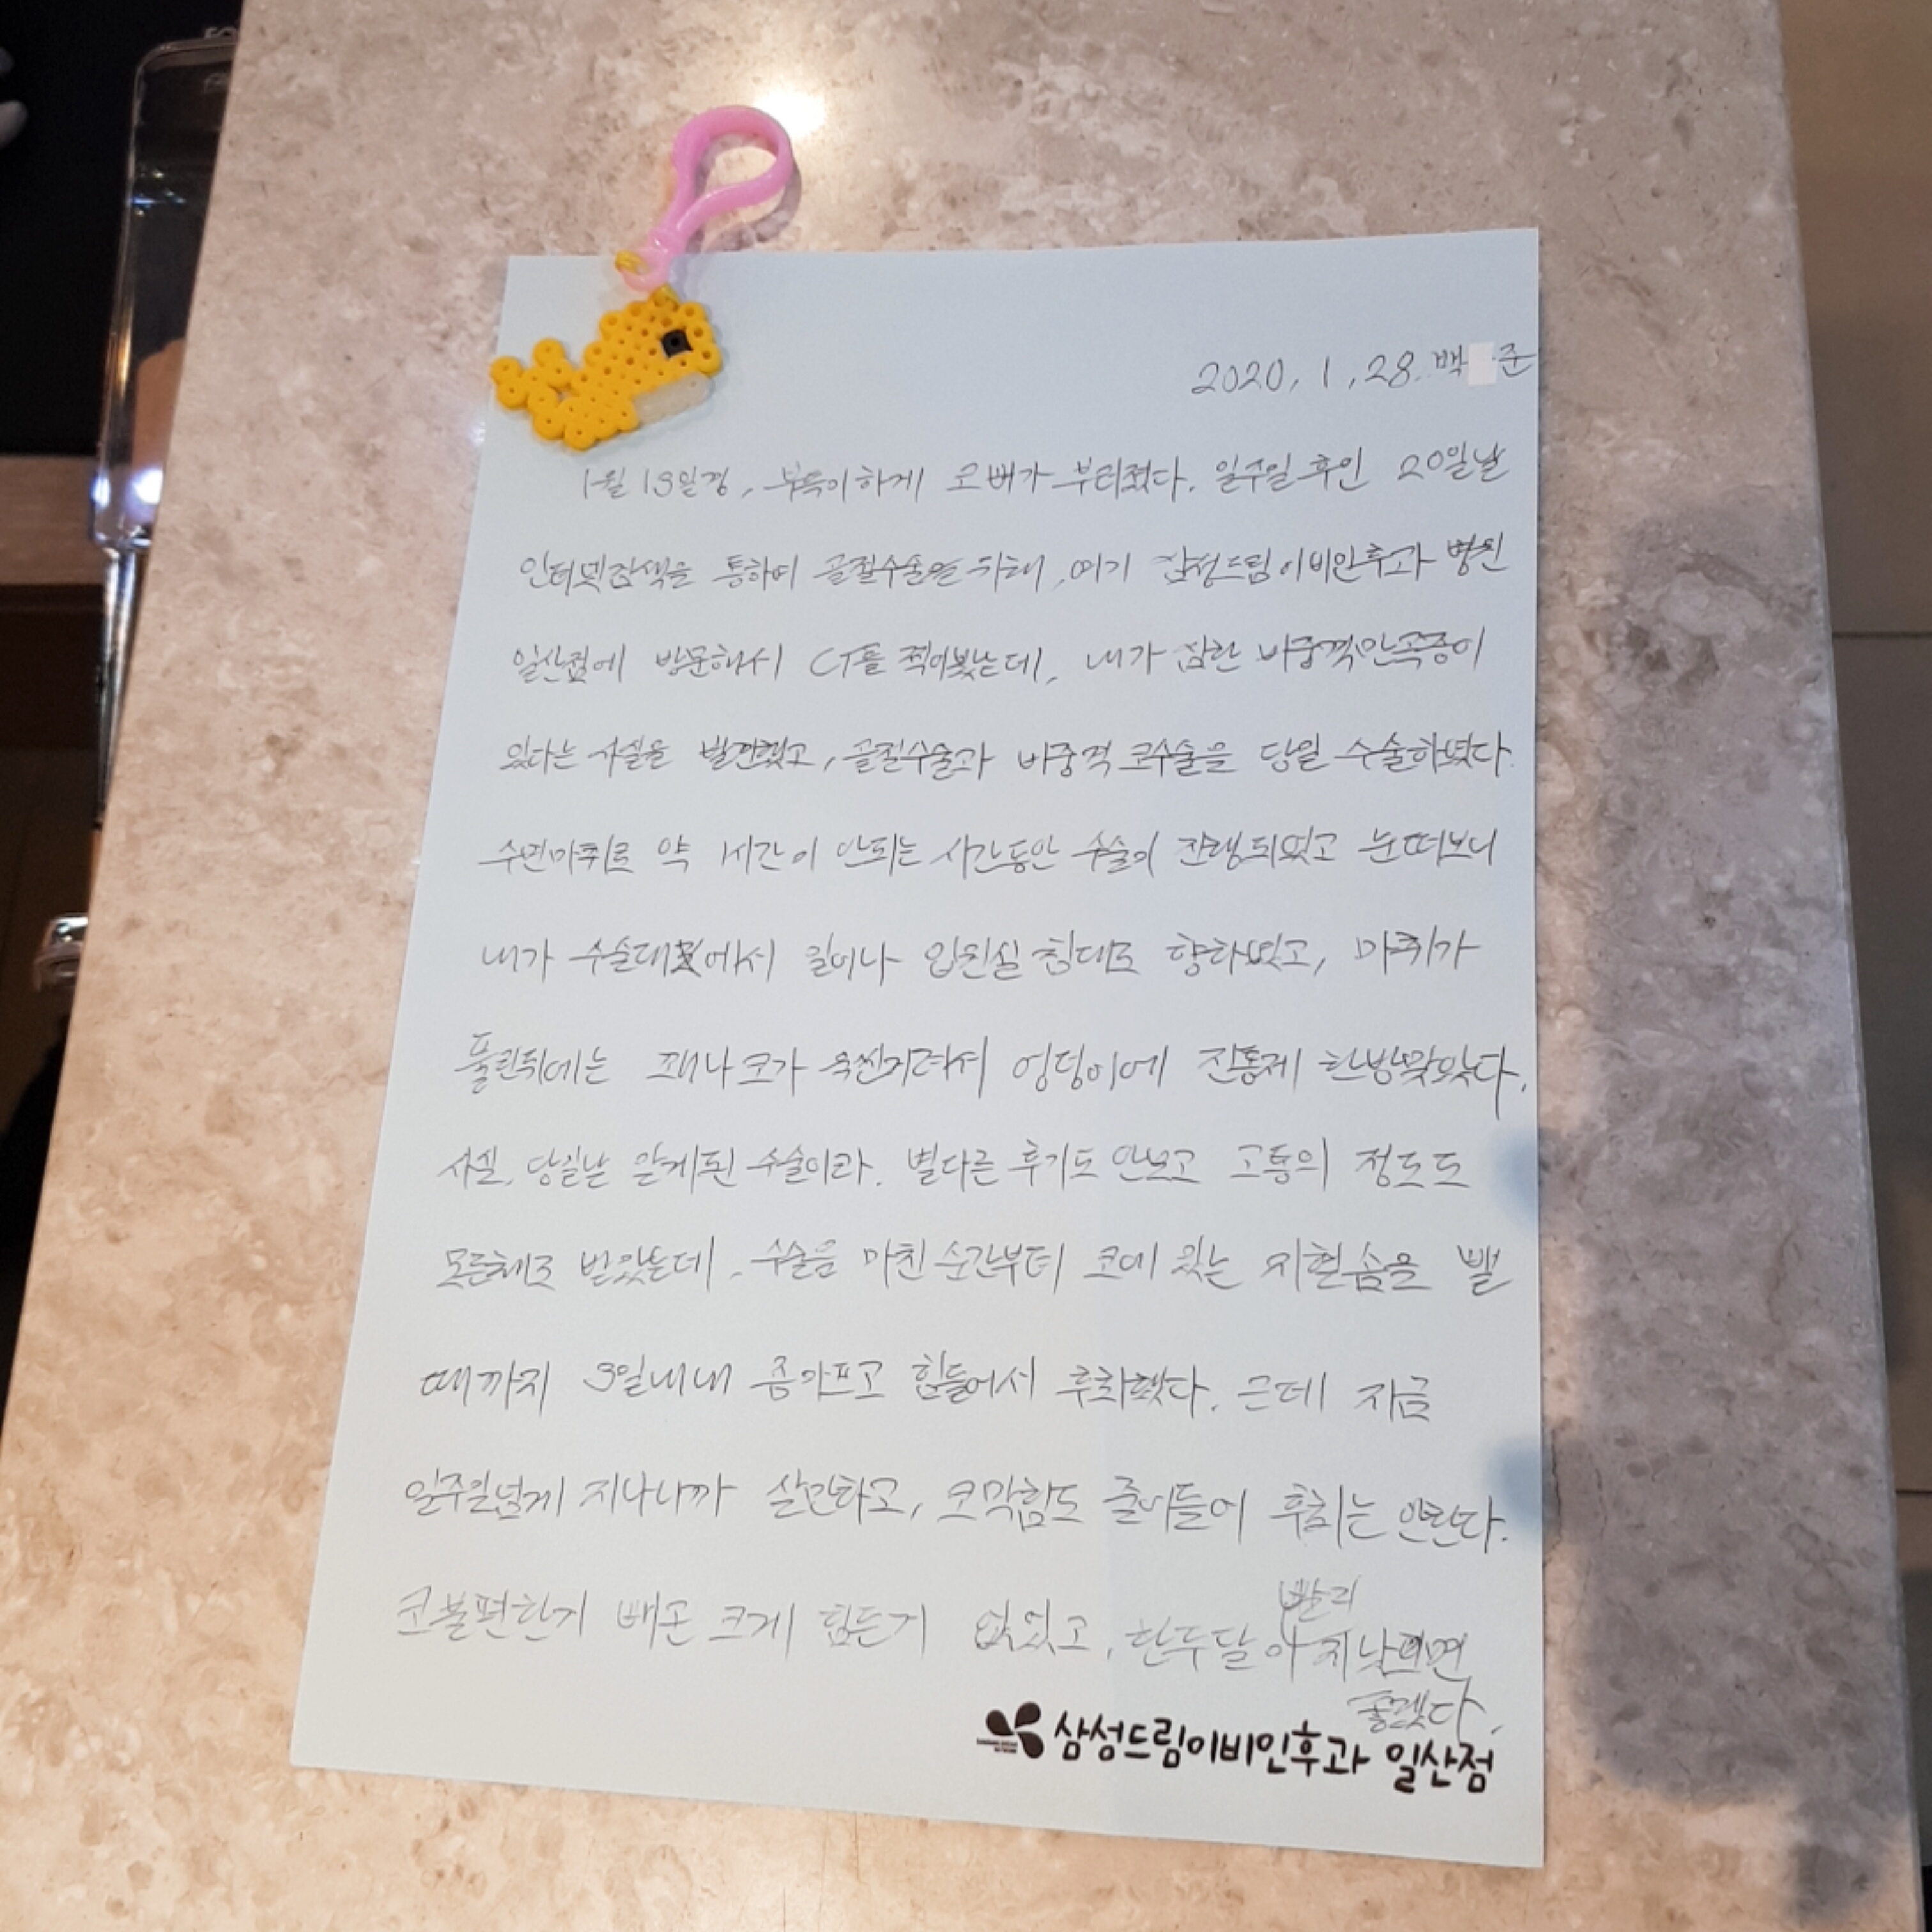 2020. 1. 28. 백 준
1월 13일경, 부득이하게 코뼈가 부러졌다. 일주일 후인 20일날
인터넷검색을 통하여 골절수술을 위해, 여기 삼성드림이비인후과 병원
일산점에 방문해서 CT를 찍어봤는데, 내가 심한 비중격만곡증이
있다는 사실을 발견했고, 골절수술과 비중격 코수술을 당일 수술하였다.
수면마취로 약 1시간이 안되는 시간동안 수술이 진행되었고 눈떠보니
내가 수술대에서 일어나 입원실 침대로 향하였고, 마취가
풀린뒤에는 꽤나 코가 욱씬거려서 엉덩이에 진통제 한방맞았다.
사실, 당일날 알게된 수술이라. 별다른 후기도 안보고 고통의 정도도
모른체로 받았는데, 수술을 마친 순간부터 코에 있는 지혈솜을 뺄
때까지 3일내내 좀 아프고 힘들어서 후회했다. 근데 지금
일주일넘게 지나니까 살만하고, 코막힘도 줄어들어 후회는 안한다.
코불편한거 빼곤 크게 힘든거 없었고, 한두달 빨리 지났으면
좋겠다.
삼성드림이비인후과 일산점